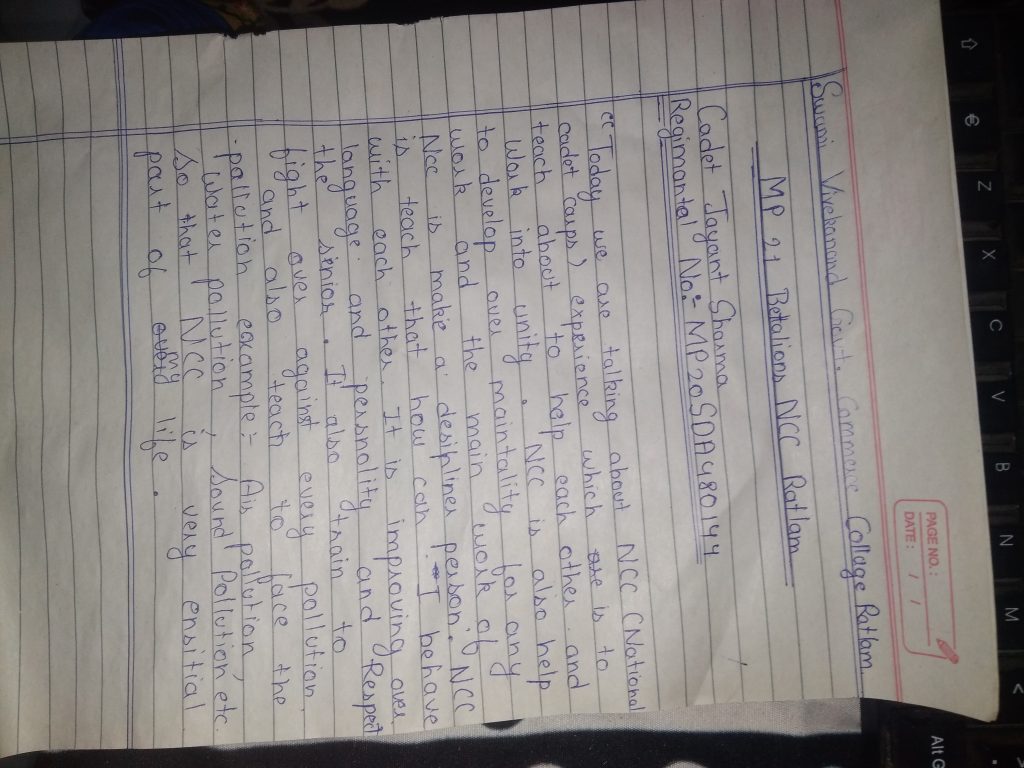 PAGE NO.:
DATE: / /
Swami Vivekanand Govt. Commerce College Ratlam
MP 21 Betalions NCC Ratlam
Cadet Jayant Sharma
Regimantal No: MP20SDA480144
"Today we are talking about NCC (National
cadet corps) experience which is to
teach about to help each other. and
Work into unity. NCC is also help
to develop over maintality for any
work and the main work of
Ncc is make a desipliner person. NCC
is teach that how can I behave
with each other. It is improving over
language and personality and Respect
the senior. It also train to
fight over against every pollution
and also teach to face the
pollution example:- Air pollution,
Water pollution, Sound Pollution, etc.
So that NCC is very ensitial
part of my life.
Z
X
C
V
B
N
M
<
Alt G
€